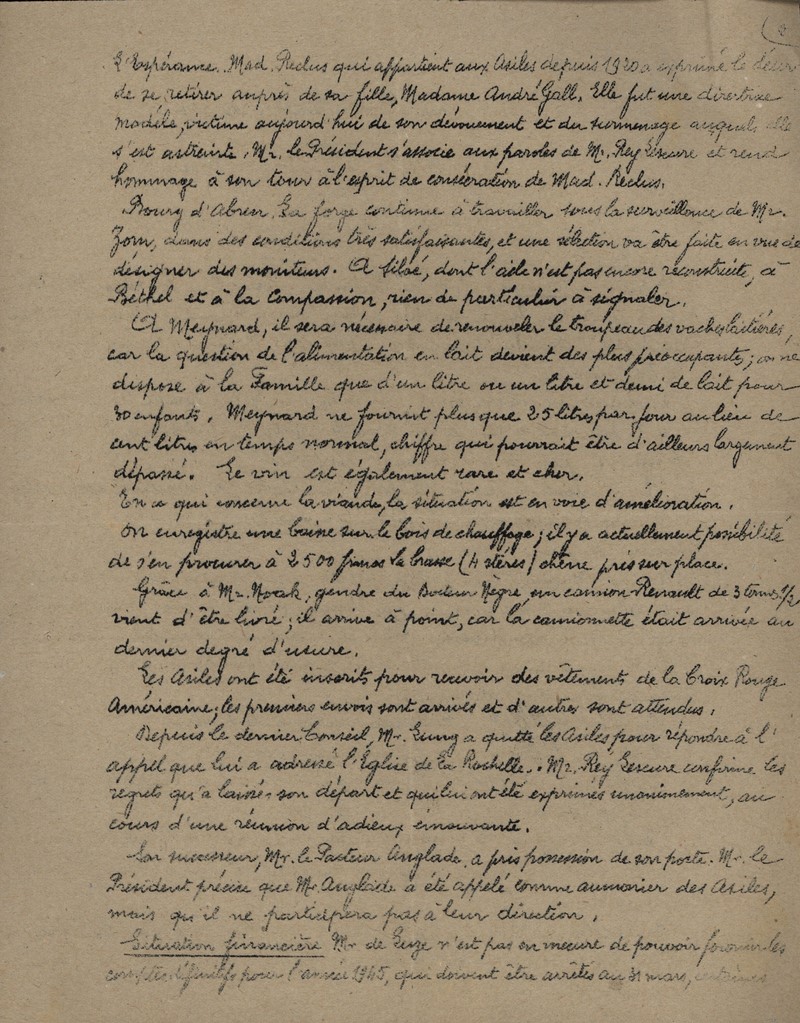 L'Espérance. Mad. Reclus qui appartient aux Asiles depuis 1920 a exprimé le désir
de se retirer auprès de sa fille, Madame André Gall. Elle fut une directrice
modèle, victime aujourd'hui de son dévouement et du surmenage auquel elle
s'est astreinte. Mr. le Président s'associe aux paroles de Mr. Rey Lescure et rend
hommage à son tour à l'esprit de consécration de Mad. Reclus.
Bourg d'Abren. La forge continue à travailler sous la surveillance de Mr.
Jorn, dans des conditions très satisfaisantes, et une sélection va être faite en vue de
désigner des moniteurs. A Siloé, dont l'aile n'est pas encore reconstruite, à
Béthel et à la Compassion, rien de particulier à signaler.
A Meynard, il sera nécessaire de renouveler le troupeau des vaches laitières,
car la question de l'alimentation en lait devient des plus préoccupante; on ne
dispose à la Famille que d'un litre ou un litre et demi de lait pour
30 enfants. Meynard ne fournit plus que 25 litres par jour au lieu de
cent litres en temps normal, chiffre qui pourrait être d'ailleurs largement
dépassé. Le vin est également rare et cher.
En ce qui concerne la viande, la situation est en voie d'amélioration.
On enregistre une baisse sur le bois de chauffage; il y a actuellement possibilité
de s'en procurer à 2500 francs la brasse (4 stères) chêne pris sur place.
Grâce à Mr. Noak, gendre du Docteur Nègre, un camion Renault de 3 tonnes 1/2
vient d'être livré; il arrive à point, car la camionnette était arrivée au
dernier degré d'usure.
Les Asiles ont été inscrits pour recevoir des vêtements de la Croix Rouge
Américaine; les premiers envois sont arrivés et d'autres sont attendus.
Depuis le dernier Conseil, Mr. Euny a quitté les Asiles pour répondre à l'
appel que lui a adressé l'Église de La Rochelle. Mr. Rey Lescure confirme les
regrets qu'a laissés son départ et qui lui ont été exprimés unanimement, au
cours d'une réunion d'adieux émouvante.
Son successeur, Mr. le Pasteur Anglade, a pris possession de son poste. Mr. le
Président précise que Mr. Anglade a été appelé comme aumonier des Asiles,
mais qu'il ne participera pas à leur direction.
Situation financière Mr de Luze n'est pas en mesure de pouvoir fournir les
comptes définitifs pour l'année 1945, qui doivent être arrêtés au 31 mars, certaines